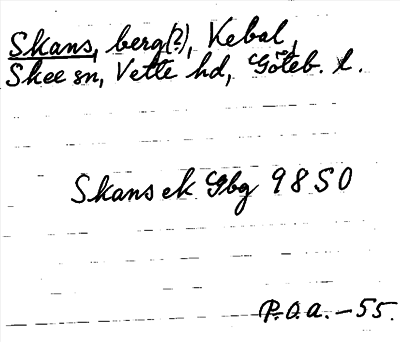 Skans, berg(?), Kebal,
Skee sn, Vette hd, Göteb. l.
Skans ek Gbg 9850
P.O.A. -55.